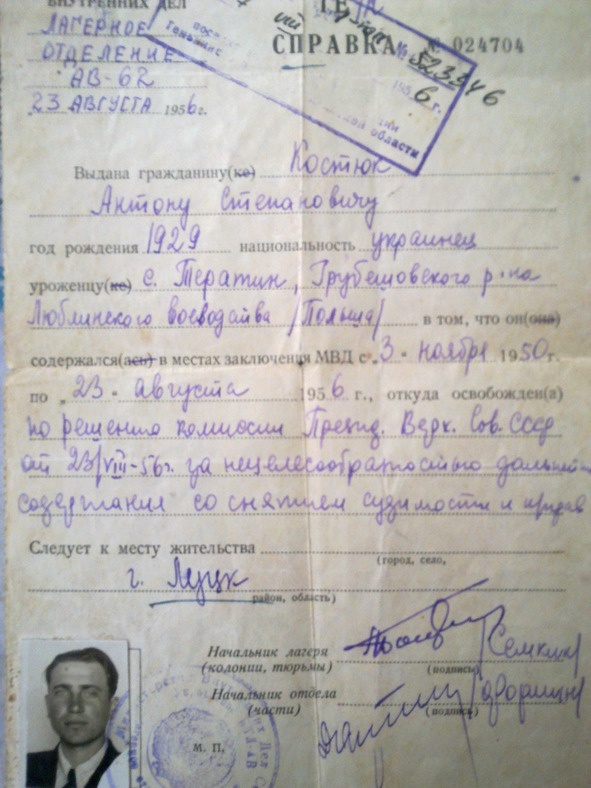 ВНУТРЕННИХ ДЕЛ
ЛАГЕРНОЕ
ОТДЕЛЕНИЕ
АВ-62
"23" АВГУСТА 1956 г.
СПРАВКА № 024704
№ 523946
195 6 г.
области
Выдана гражданину(ке) Костюк
Антону Степановичу
год рождения 1929 национальность украинец
уроженцу(ке) с. Тератин, Грубешовского р-на
Люблинского воеводства /Польша/ в том, что он(она)
содержался(ась) в местах заключения МВД с „3" ноября 1950 г.
по „23" августа 1956 г., откуда освобожден(а)
по решению комиссии Презид. Верх. Сов. СССР
от 23/VIII-56г. за нецелесообразностью дальнейш
содержания со снятием судимости и
Следует к месту жительства
(город, село,
г. Луцк
район, область)
Начальник лагеря
(колонии, тюрьмы)
/Семкин/
(подпись)
Начальник отдела
(части)
(подпись)
М. П.